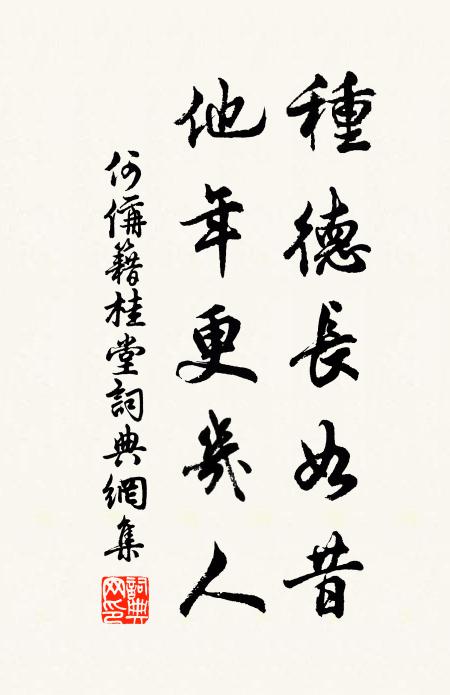 種德長如昔
他年更幾人
何偁籍桂堂詞典網集
詞典网印